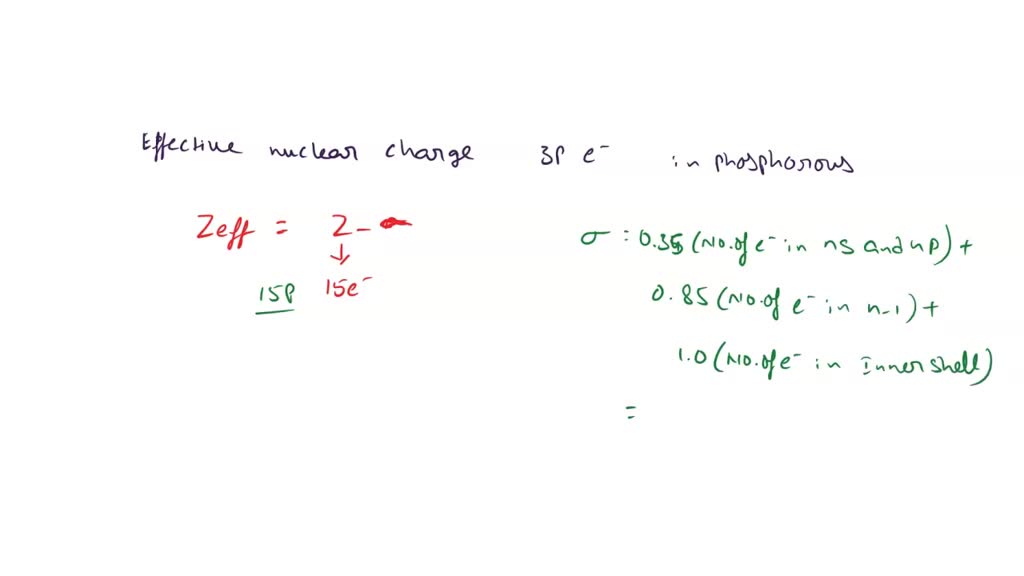 Effective nuclear charge 3P e⁻ in phosphorous
Zeff = Z -
↓
15P 15e⁻
σ = 0.35 (No. of e⁻ in ns and np) +
0.85 (No. of e⁻ in n-1) +
1.0 (No. of e⁻ in Inner shell)
=